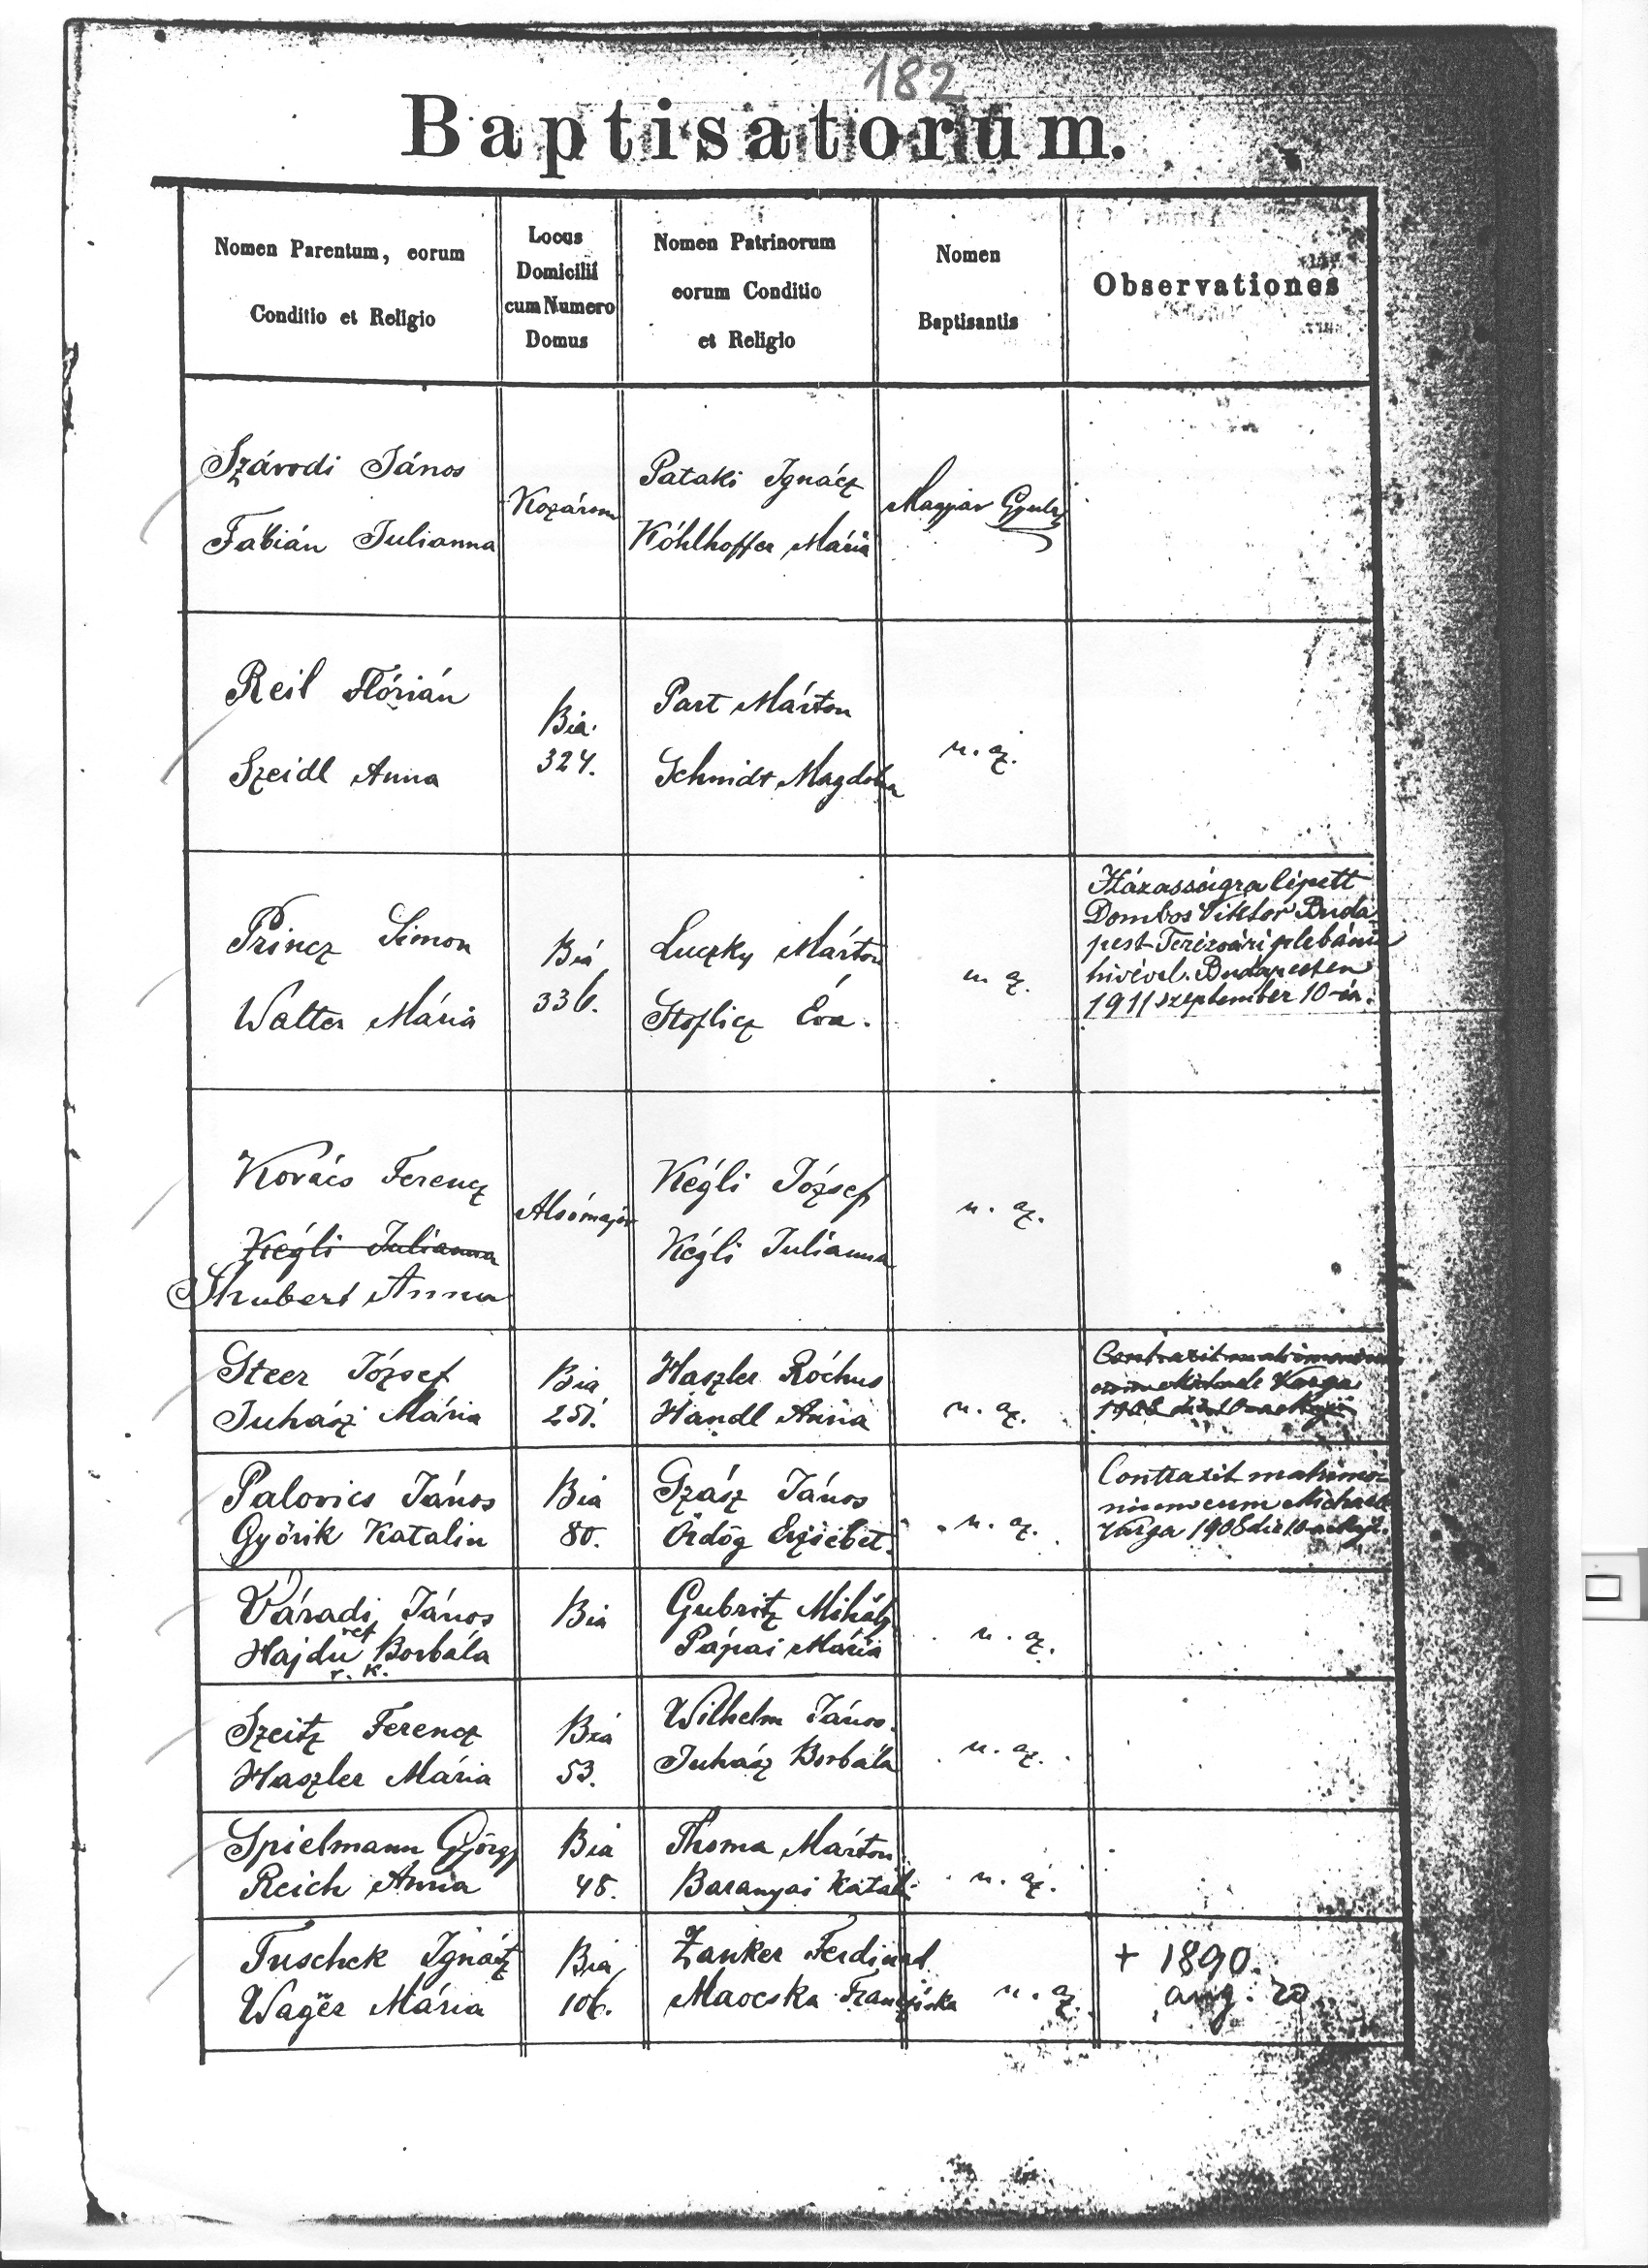 182
Baptisatorum.
Nomen Parentum, eorum
Conditio et Religio
Locus
Domicilii
cum Numero
Domus
Nomen Patrinorum
eorum Conditio
et Religio
Nomen
Baptisantis
Observationes
Szávodi János
Fábián Julianna
Kozárom
Pataki Ignácz
Kóhlhoffer Mária
Magyar Gyula
Reil Flórián
Szeidl Anna
Bia.
324.
Part Márton
Schmidt Magdolna
u. az.
Princz Simon
Walter Mária
Bia
336.
Luczky Márton
Stoflicz Éva.
u. az.
Házasságra lépett
Dombos Viktor Buda-
pest-Terézvári plebánia
hivével. Budapesten
1911 szeptember 10-én.
Kovács Ferencz
Kégli Julianna
Shubert Anna
Alsómajor
Kégli József
Kégli Julianna
u. az.
Steer József
Juhász Mária
Bia
251.
Haszler Róchus
Handl Anna
u. az.
Contraxit matrimonium
Varga
1908
Palovics János
Győrik Katalin
Bia
80.
Szász János
Ördög Erzsébet.
u. az.
Contraxit matrimo-
nium cum Michaele
Varga 1908 die 10
Váradi János
ref
Hajdu Borbála
r. k.
Bia
Gubritz Mihály
Pápai Mária
u. az.
Szeitz Ferencz
Haszler Mária
Bia
53.
Wilhelm János.
Juhász Borbála
u. az.
Spielmann György
Reich Anna
Bia
48.
Thoma Márton
Baranyai Katali
u. az.
Tuschek Ignátz
Wager Mária
Bia
106.
Zanker Ferdinad
Maocska Franziska
u. az.
+ 1890.
aug. 20